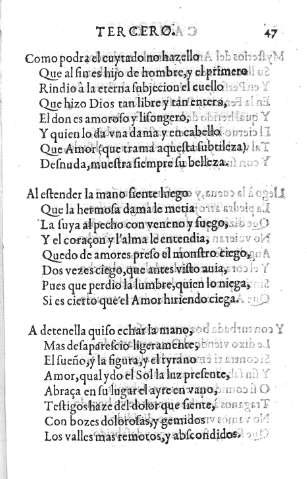 TERCERO. 47
Como podra el cuytado no hazello
Que al fin es hijo de hombre, y el primero
Rindio à la eterna subjecion el cuello
Que hizo Dios tan libre y tan entero,
El don es amoroso y lisongero,
Y quien lo da vna dama y en cabello
Que Amor (que trama aquesta subtileza)
Desnuda, muestra siempre su belleza.
Al estender la mano siente luego
Que la hermosa dama le metia
La suya al pecho con veneno y fuego,
Y el coraçon y l'alma le entendia,
Quedo de amores preso el monstro ciego,
Dos vezes ciego, que antes visto auia,
Pues que perdio la lumbre, quien lo niega,
Si es cierto que el Amor hiriendo ciega.
A detenella quiso echar la mano,
Mas desaparescio ligeramente,
El sueño, y la figura, y el tyrano
Amor, qual ydo el Sol la luz presente,
Abraça en su lugar el ayre en vano,
Testigos haze del dolor que siente,
Con bozes dolorosas, y gemidos
Los valles mas remotos, y abscondidos.